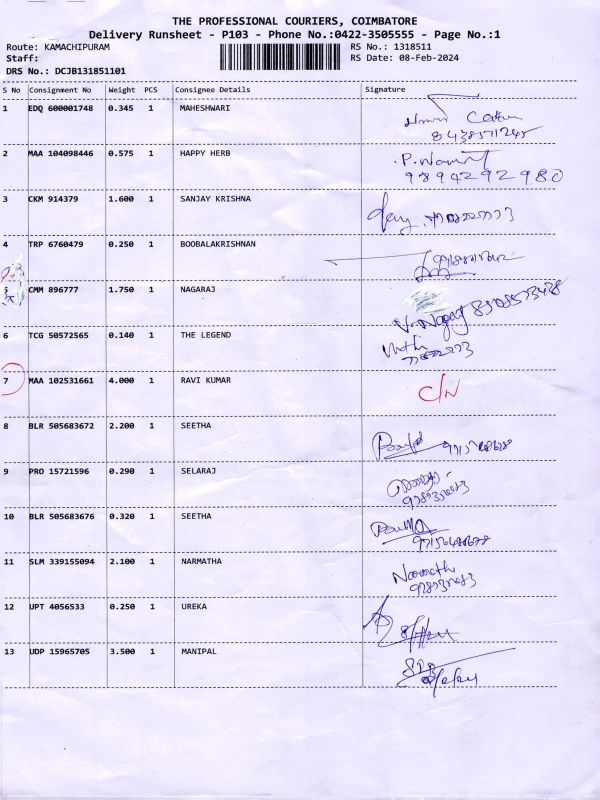 THE PROFESSIONAL COURIERS, COIMBATORE
Delivery Runsheet - P103 - Phone No.:0422-3505555 - Page No.:1
Route: KAMACHIPURAM RS No.: 1318511
Staff: RS Date: 08-Feb-2024
DRS No.: DCJB131851101
S No Consignment No Weight PCS Consignee Details Signature
1 EDQ 600001748 0.345 1 MAHESHWARI
2 MAA 104098446 0.575 1 HAPPY HERB
9894292980
3 CKM 914379 1.600 1 SANJAY KRISHNA
4 TRP 6760479 0.250 1 BOOBALAKRISHNAN
5 CMM 896777 1.750 1 NAGARAJ V. Nagaraj
6 TCG 50572565 0.140 1 THE LEGEND
7 MAA 102531661 4.000 1 RAVI KUMAR C/N
8 BLR 505683672 2.200 1 SEETHA
9 PRO 15721596 0.290 1 SELARAJ
10 BLR 505683676 0.320 1 SEETHA
11 SLM 339155094 2.100 1 NARMATHA
12 UPT 4056533 0.250 1 UREKA
13 UDP 15965705 3.500 1 MANIPAL